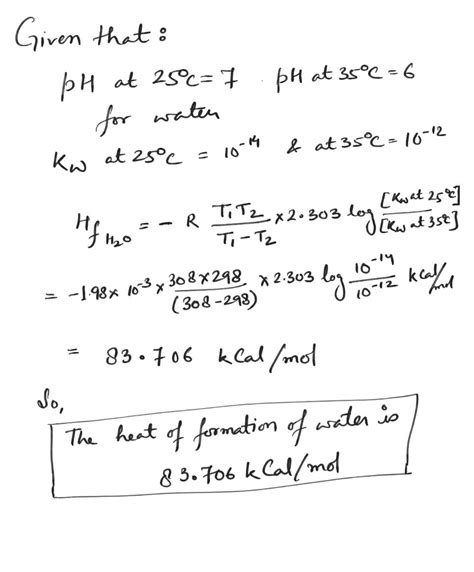 Given that :
pH at 25°C = 7 . pH at 35°C = 6
for water
Kw at 25°C = 10^-14 & at 35°C = 10^-12
Hf H2O = - R T1T2 / T1-T2 × 2.303 log [Kw at 25°C] / [Kw at 35°C]
= -1.98 × 10^-3 × 308×298 / (308-298) × 2.303 log 10^-14 / 10^-12 kcal/mol
= 83.706 kCal/mol
So,
The heat of formation of water is
83.706 kCal/mol